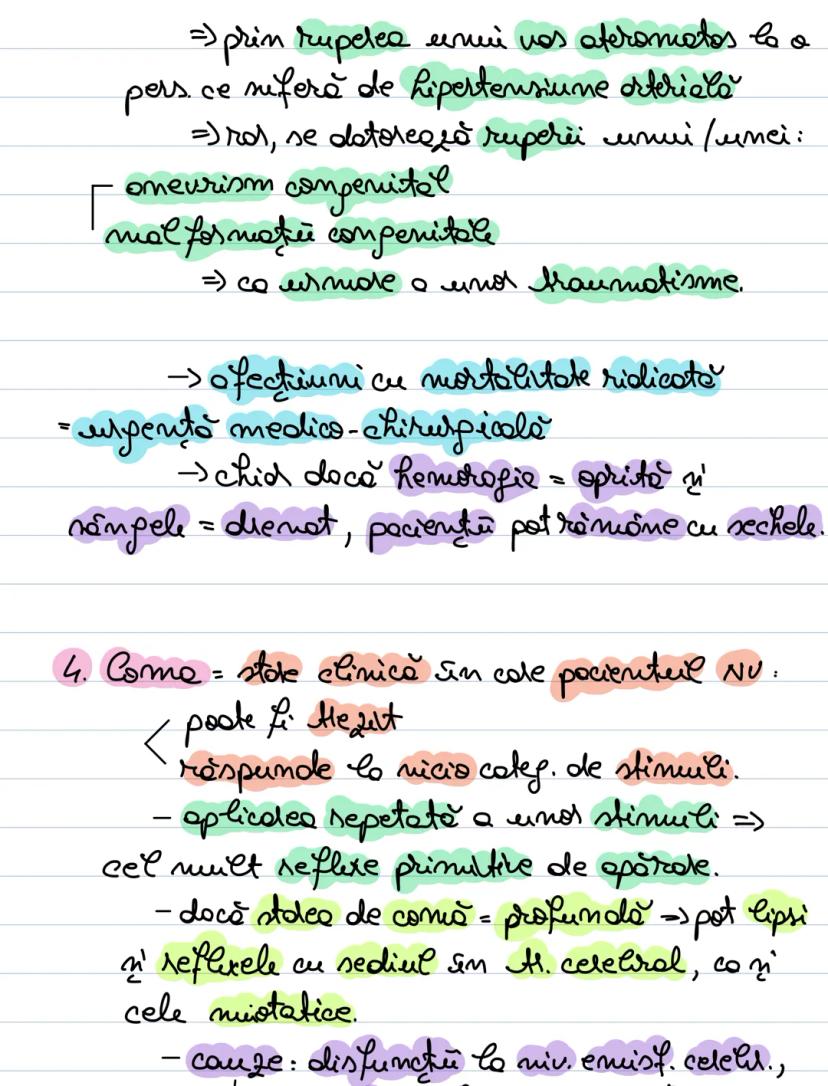 => prin ruperea unui vas ateromatos la o
pers. ce suferă de hipertensiune arterială
=> rar, se datorează ruperii unui / unei:
anevrism congenital
malformații congenitale
=> ca urmare a unor traumatisme.
-> afecțiuni cu mortalitate ridicată
= urgență medico-chirurgicală
-> chiar dacă hemoragie = oprită și
sângele = drenat, pacienții pot rămâne cu sechele.
4. Coma = stare clinică în care pacientul NU:
poate fi trezit
răspunde la nicio categ. de stimuli.
- aplicarea repetată a unor stimuli =>
cel mult reflexe primitive de apărare.
- dacă starea de comă = profundă => pot lipsi
și reflexele cu sediul în tr. cerebral, ca și
cele miotatice.
- cauze: disfuncții la niv. emisf. cerebr.,